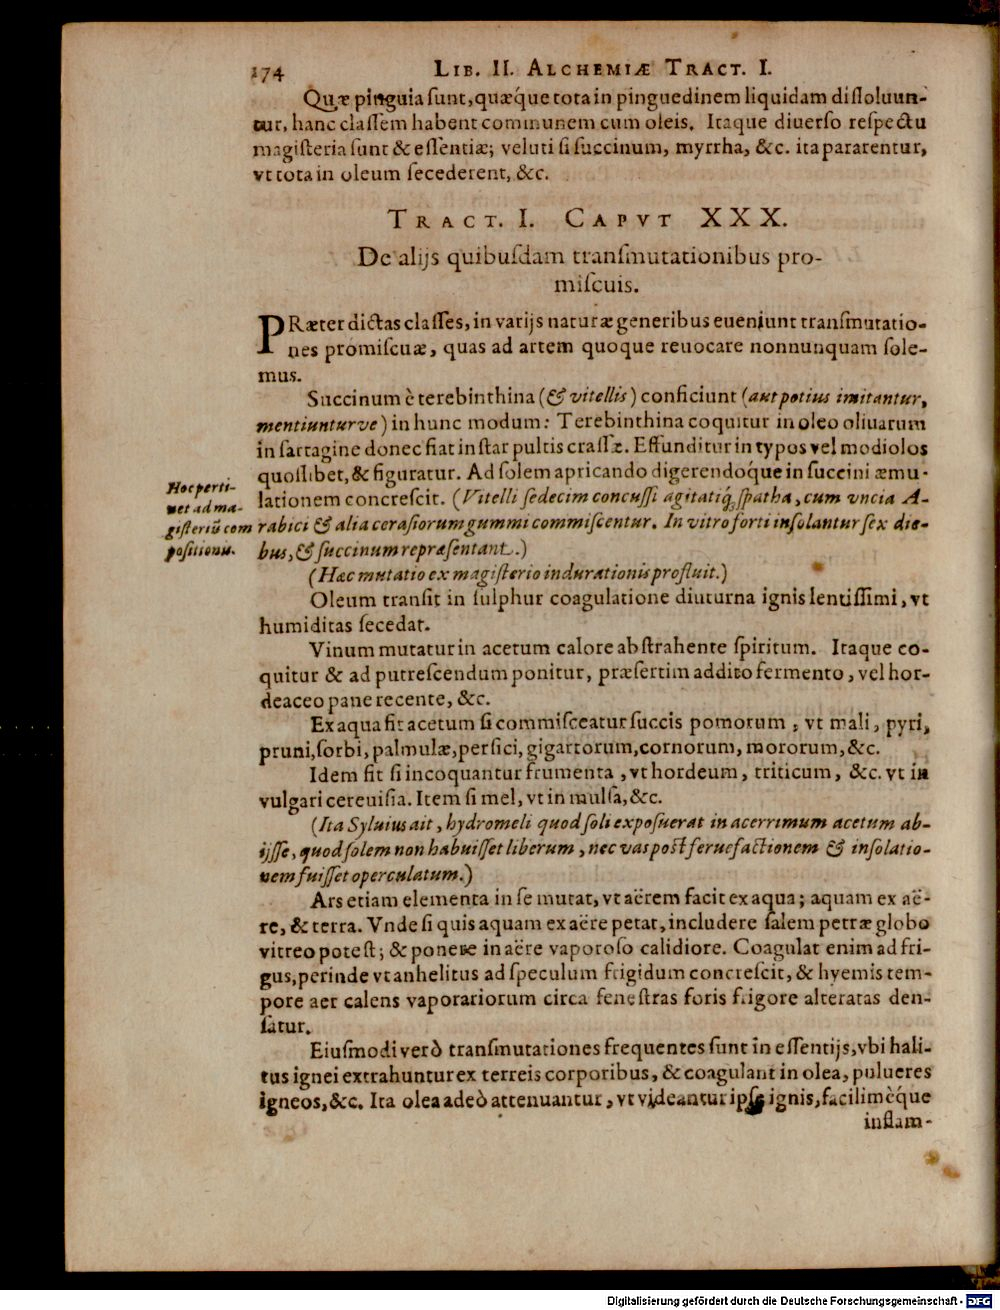 174 LIB. II. ALCHEMIÆ TRACT. I.
Quæ pinguia ſunt, quæq́ue tota in pinguedinem liquidam diſſoluun-
tur, hanc claſſem habent communem cum oleis. Itaque diuerſo reſpectu
magiſteria ſunt & eſſentiæ; veluti ſi ſuccinum, myrrha, &c. ita pararentur,
vt tota in oleum ſecederent, &c.
TRACT. I. CAPVT XXX.
De alijs quibuſdam tranſmutationibus pro-
miſcuis.
PRæter dictas claſſes, in varijs naturæ generibus eueniunt tranſmutatio-
nes promiſcuæ, quas ad artem quoque reuocare nonnunquam ſole-
mus.
Succinum è terebinthina (& vitellis) conficiunt (aut potius imitantur,
mentiunturve) in hunc modum: Terebinthina coquitur in oleo oliuarum
in ſartagine donec fiat inſtar pultis craſſæ. Effunditur in typos vel modiolos
quoſlibet, & figuratur. Ad ſolem apricando digerendoq́ue in ſuccini æmu-
lationem concreſcit. (Vitelli ſedecim concuſſi agitatiq́; ſpatha, cum vncia A-
rabici & alia ceraſiorum gummi commiſcentur. In vitro forti inſolantur ſex die-
bus, & ſuccinum repræſentant.)
Hoc perti-
net ad ma-
giſteriũ com
poſitionis.
(Hæc mutatio ex magiſterio indurationis profluit.)
Oleum tranſit in ſulphur coagulatione diuturna ignis lentiſſimi, vt
humiditas ſecedat.
Vinum mutatur in acetum calore abſtrahente ſpiritum. Itaque co-
quitur & ad putreſcendum ponitur, præſertim addito fermento, vel hor-
deaceo pane recente, &c.
Ex aqua fit acetum ſi commiſceatur ſuccis pomorum, vt mali, pyri,
pruni, ſorbi, palmulæ, perſici, gigartorum, cornorum, mororum, &c.
Idem fit ſi incoquantur frumenta, vt hordeum, triticum, &c. vt in
vulgari cereuiſia. Item ſi mel, vt in mulſa, &c.
(Ita Syluius ait, hydromeli quod ſoli expoſuerat in acerrimum acetum ab-
ijſſe, quod ſolem non habuiſſet liberum, nec vas poſt feruefactionem & inſolatio-
nem fuiſſet operculatum.)
Ars etiam elementa in ſe mutat, vt aërem facit ex aqua; aquam ex aë-
re, & terra. Vnde ſi quis aquam ex aëre petat, includere ſalem petræ globo
vitreo poteſt; & ponere in aëre vaporoſo calidiore. Coagulat enim ad fri-
gus, perinde vt anhelitus ad ſpeculum frigidum concreſcit, & hyemis tem-
pore aer calens vaporariorum circa feneſtras foris frigore alteratas den-
ſatur.
Eiuſmodi verò tranſmutationes frequentes ſunt in eſſentijs, vbi hali-
tus ignei extrahuntur ex terreis corporibus, & coagulant in olea, pulueres
igneos, &c. Ita olea adeò attenuantur, vt videantur ipſe ignis, facilimèq́ue
inflam-
Digitalisierung gefördert durch die Deutsche Forschungsgemeinschaft - DFG